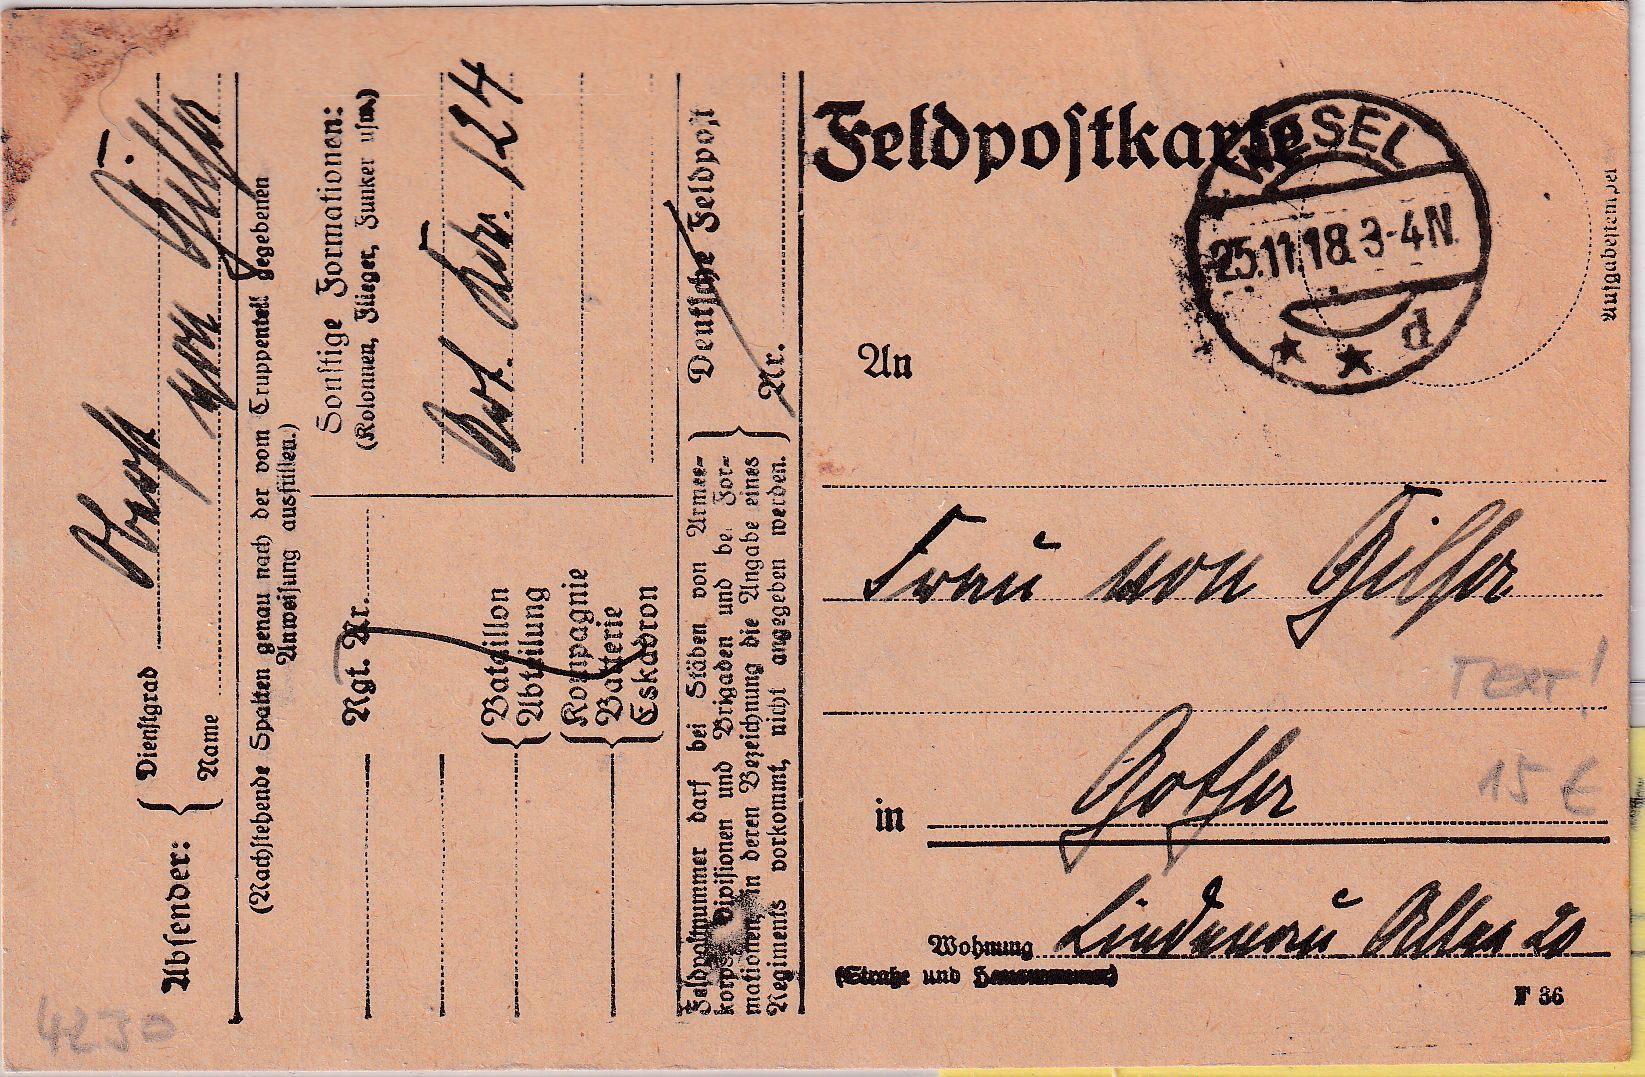 Feldpostkarte
WESEL
25.11.18. 3-4 N.
* * d
Aufgabestempel
An
Frau von Gilsa
in Gotha
Wohnung Lindenau Allee 20
(Straße und Hausnummer)
F 36
Text!
15 €
Absender:
Dienstgrad Oberst
Name von Gilsa
(Nachstehende Spalten genau nach der vom Truppenteil gegebenen
Anweisung ausfüllen.)
Rgt. Nr.
Bataillon
Abteilung
Kompagnie
Batterie
Eskadron
Sonstige Formationen:
(Kolonnen, Flieger, Funker usw.)
Art. Kdr. 124
Feldpostnummer darf bei Stäben von Armee-
korps, Divisionen und Brigaden und bei For-
mationen, in deren Bezeichnung die Angabe eines
Regiments vorkommt, nicht angegeben werden.
Deutsche Feldpost
Nr.
4230